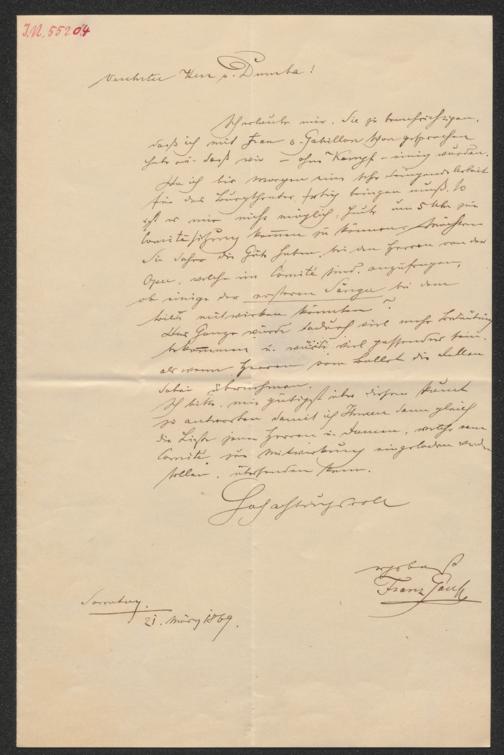 I.N. 55204
Verehrter Herr v. Dumba!
Ich erlaube mir, Sie zu benachrichtigen,
daß ich mit Frau v. Gabillon schon gesprochen
habe u. daß wir – ohne Kampf – einig wurden.
Da ich bis morgen eine sehr dringende Arbeit
für das Burgtheater fertig bringen muß, so
ist es mir nicht möglich, heute um 5 Uhr zur
Comitésitzung kommen zu können. Möchten
Sie daher die Güte haben, bei den Herren von der
Oper, welche im Comité sind, anzufragen,
ob einige der ersteren Sänger bei dem
mitwirken könnten?
Das Ganze würde dadurch viel mehr Bedeutung
bekommen u. würde viel passender sein,
als wenn Herren vom Ballet die Rollen
dabei übernehmen.
Ich bitte, mir gütigst über diesen Punkt
zu antworten damit ich Ihnen dann gleich
die Liste jener Herren u. Damen, welche vom
Comité zur Mitwirkung eingeladen werden
sollen, übersenden kann.
Hochachtungsvoll
Franz
Sonntag,
21. März 1869.